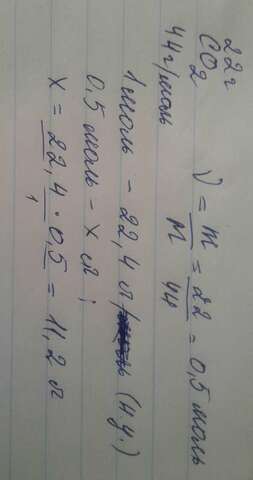 22г
CO2
44г/моль
ν = m/M = 22/44 = 0,5 моль
1 моль – 22,4 л (н.у.)
0,5 моль – x л;
x = 22,4 · 0,5 / 1 = 11,2 л